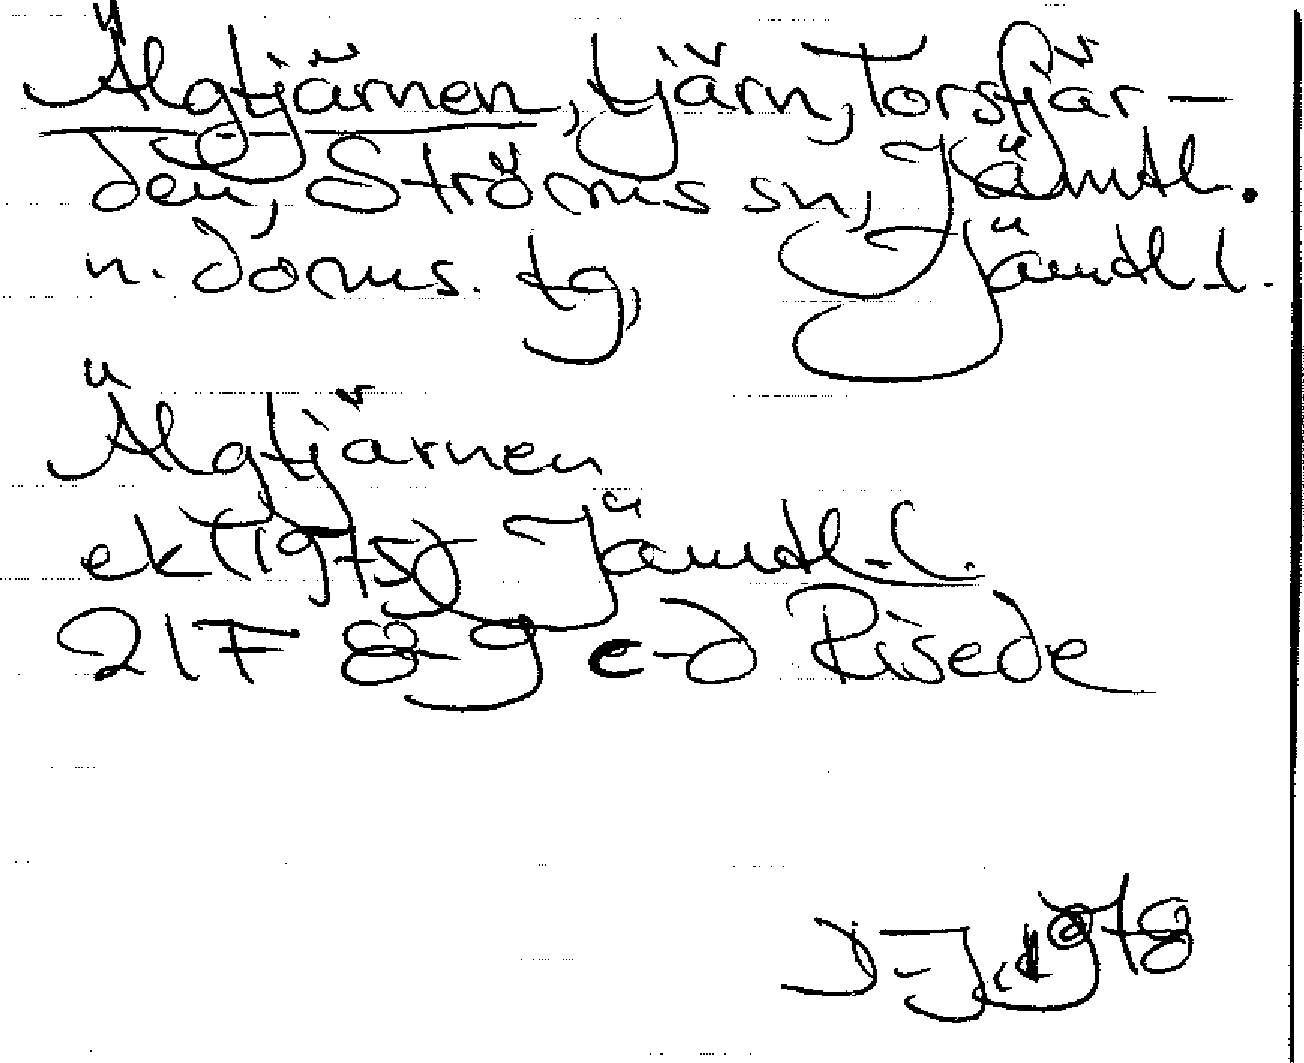 Älgtjärnen, tjärn, Torsfjär-
den, Ströms sn, Jämtl.
n. doms. tg, Jämtl. l.
Älgtjärnen
ek 1975, Jämtl. l.
21F 8-g c-d Risede
1978